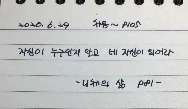 2020.6.29 처음~P105
자신이 누구인지 알고 네 자신이 되어라
-니체의 삶 P91-